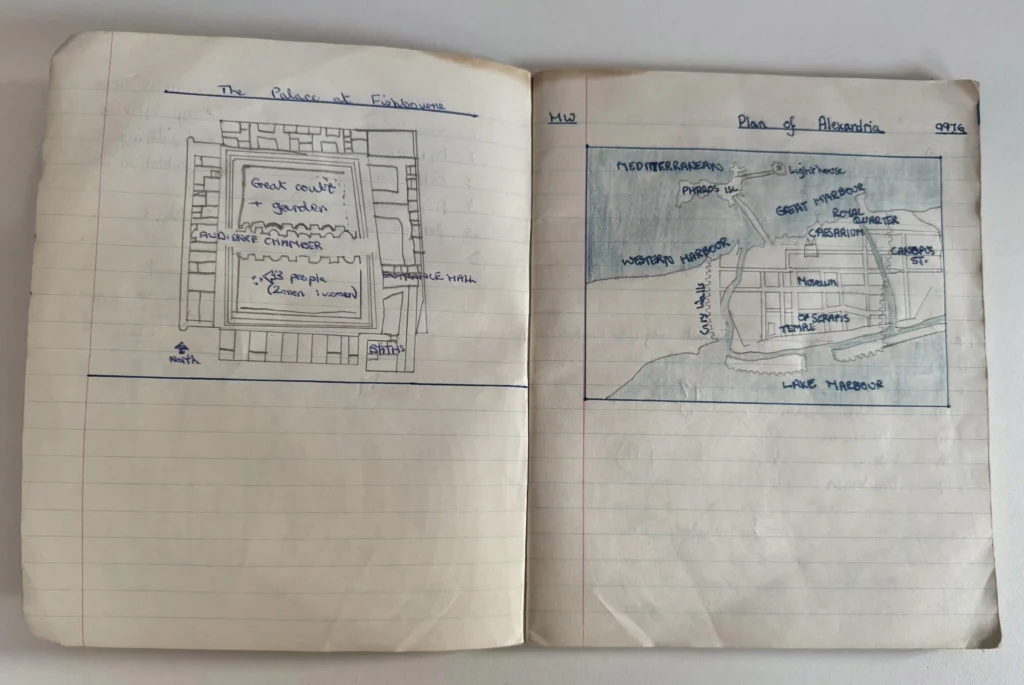 The Palace at Fishbourne
Great court
+ garden
AUDIENCE CHAMBER
3 people
(2 men 1 women)
ENTRANCE HALL
BATHS
North
MW
Plan of Alexandria
MEDITERRANEAN
Lighthouse
PHAROS ISL
GREAT HARBOUR
ROYAL
QUARTER
CAESARIUM
WESTERN HARBOUR
CANOPUS
ST.
Museum
City Walls
OF SERAPIS
TEMPLE
LAKE HARBOUR